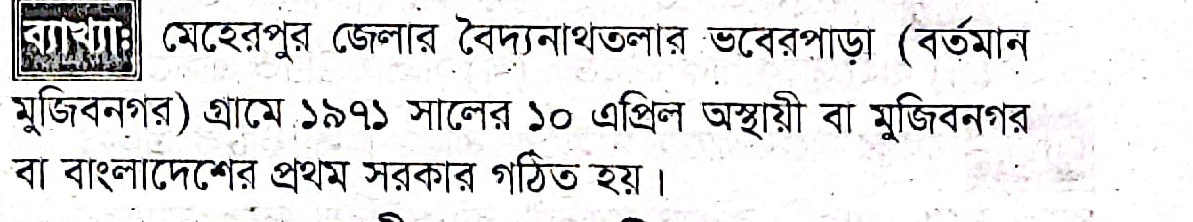 ব্যাখ্যাঃ মেহেরপুর জেলার বৈদ্যনাথতলার ভবেরপাড়া (বর্তমান
মুজিবনগর) গ্রামে ১৯৭১ সালের ১০ এপ্রিল অস্থায়ী বা মুজিবনগর
বা বাংলাদেশের প্রথম সরকার গঠিত হয়।